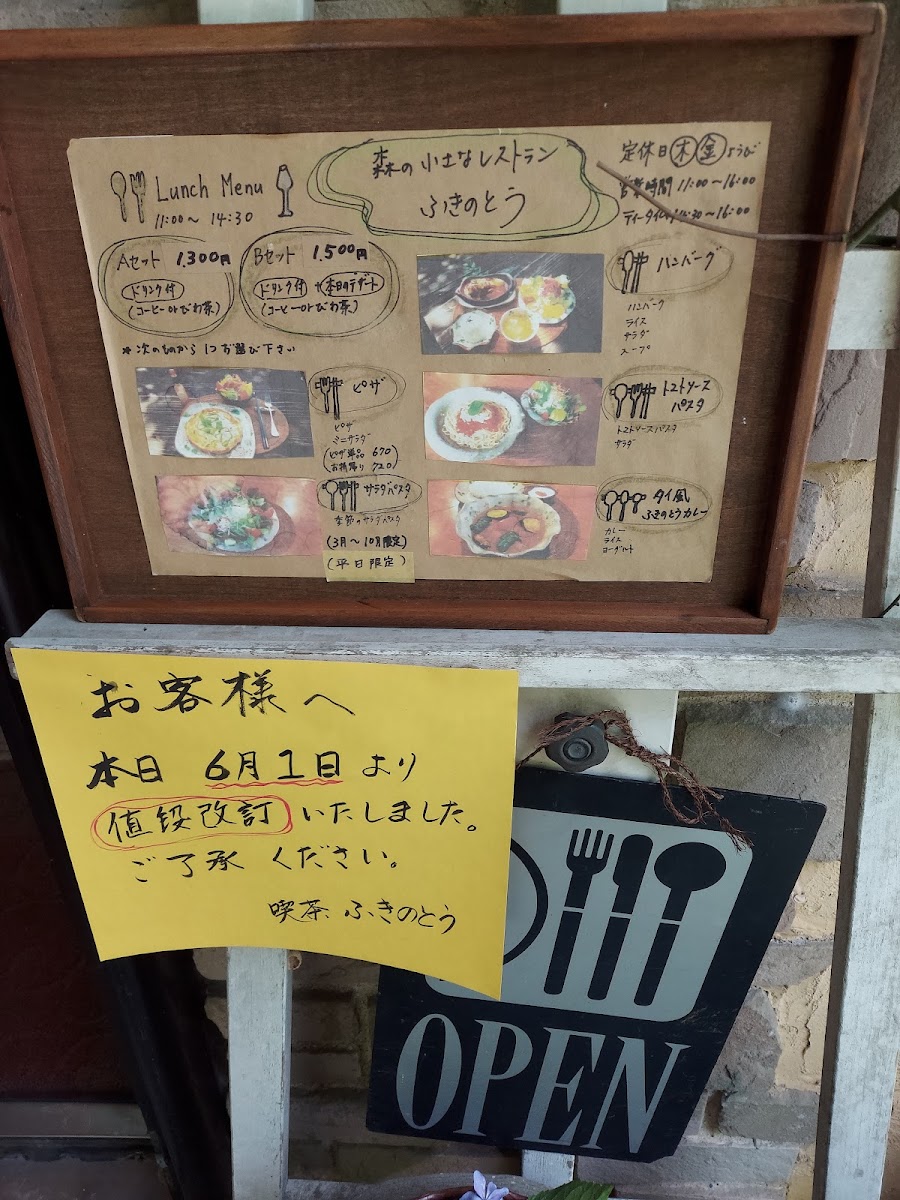 Lunch Menu
11:00～ 14:30
森の小さなレストラン
ふきのとう
定休日 木 金 ようび
営業時間 11:00～16:00
ティータイム 14:30～16:00
Aセット 1.300円
ドリンク付
(コーヒーorびわ茶)
Bセット 1.500円
ドリンク付 +本日のデザート
(コーヒーorびわ茶)
*次のものから1つお選び下さい
ハンバーグ
ハンバーグ
ライス
サラダ
スープ
ピザ
ピザ
ミニサラダ
(ピザ単品 670
お持帰り 720)
トマトソース
パスタ
トマトソースパスタ
サラダ
サラダパスタ
季節のサラダパスタ
(3月～10月限定)
(平日限定)
タイ風
ふきのとうカレー
カレー
ライス
ヨーグルト
お客様へ
本日 6月1日より
値段改訂いたしました。
ご了承ください。
喫茶 ふきのとう
OPEN